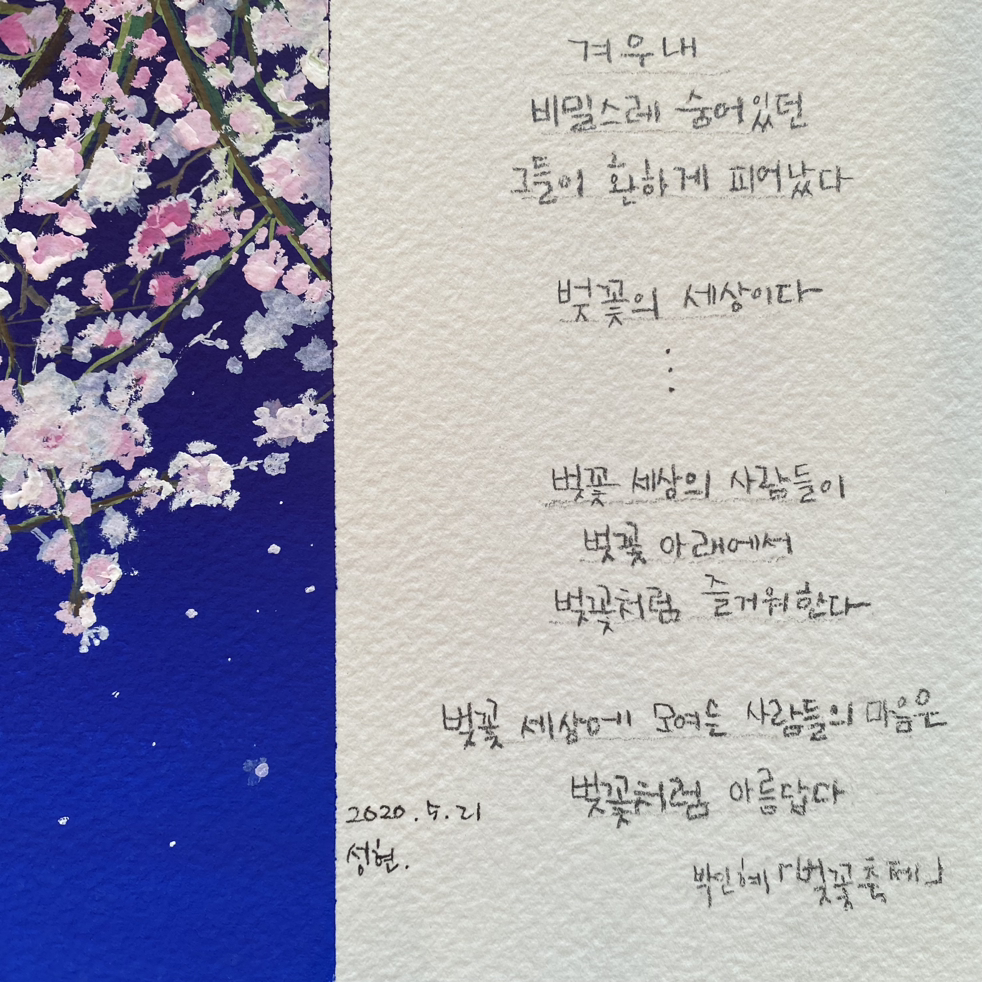 겨우내
비밀스레 숨어있던
그들이 환하게 피어났다
벚꽃의 세상이다
:
벚꽃 세상의 사람들이
벚꽃 아래에서
벚꽃처럼 즐거워한다
벚꽃 세상에 모여든 사람들의 마음은
벚꽃처럼 아름답다
2020.5.21
성현.
박인혜 「벚꽃축제」